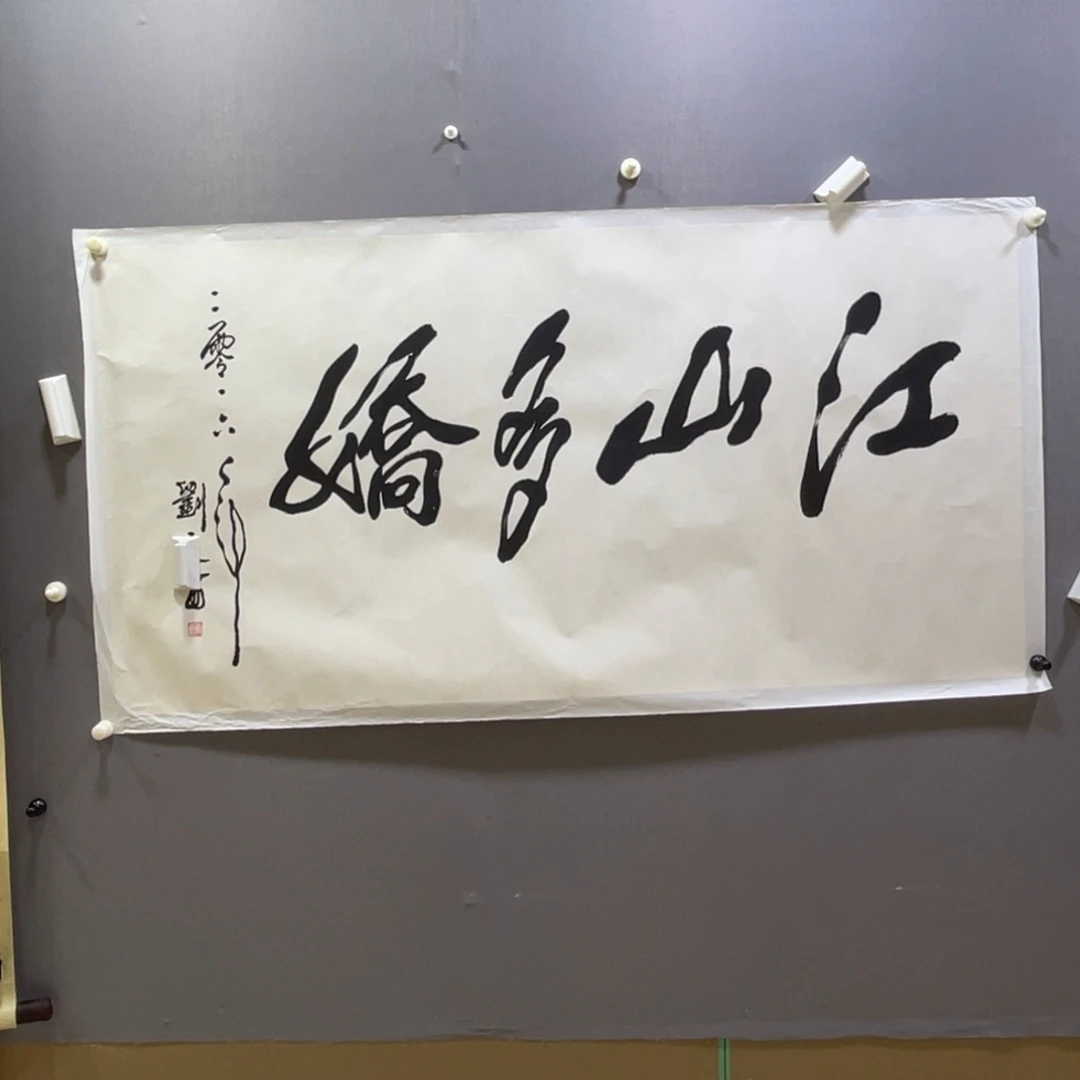 江山多嬌
二零一六年
劉